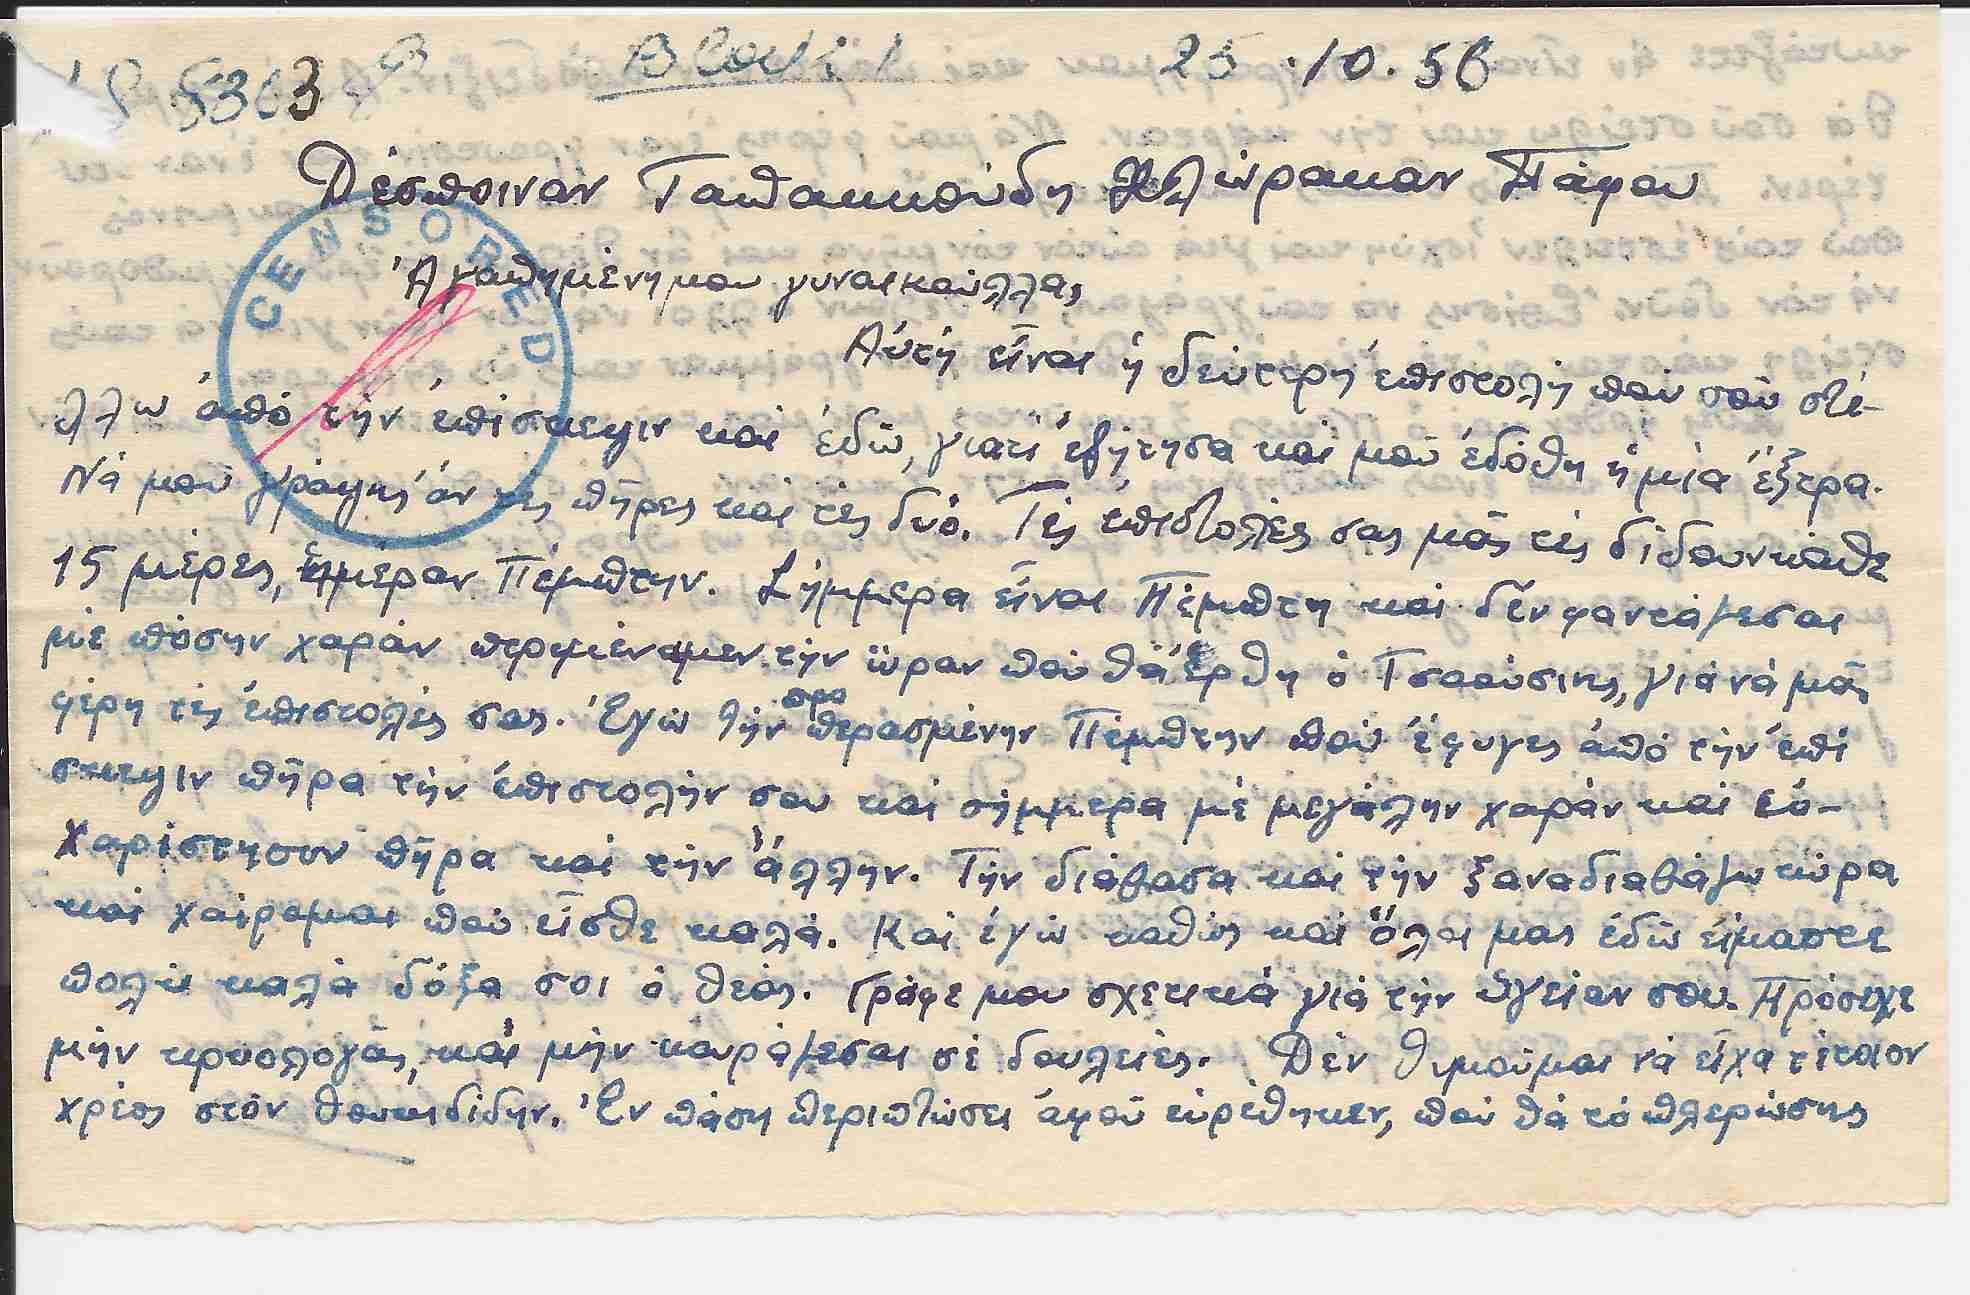 5363 B 25.10.56
Δέσποιναν Ταπακκούδη Χλώρακαν Πάφου
CENSORED
Ἀγαπημένη μου γυναικούλλα,
Αὐτή εἶναι ἡ δεύτερη ἐπιστολή πού σοῦ στέ-
λλω ἀπό τήν ἐπίσκεψιν καί ἐδῶ, γιατί ἐζήτησα καί μοῦ ἐδόθη ἡ μία ἔξτρα.
Νά μοῦ γράψης ἄν τές πῆρες καί τές δυό. Τές ἐπιστολές σας μᾶς τές δίδουν κάθε
15 μέρες, ἡμέραν Πέμπτην. Σήμμερα εἶναι Πέμπτη καί δέν φαντάζεσαι
μέ πόσην χαράν περιμέναμεν τήν ὥραν πού θά ἔρθη ὁ Τσαούσιης, γιά νά μᾶς
φέρη τές ἐπιστολές σας. Ἐγώ τήν προπερασμένην Πέμπτην πού ἔφυγες ἀπό τήν ἐπί
σκεψιν πῆρα τήν ἐπιστολήν σου καί σήμμερα μέ μεγάλην χαράν καί εὐ-
χαρίστησιν πῆρα καί τήν ἄλλην. Τήν διάβασα καί τήν ξαναδιαβάζω τώρα
καί χαίρομαι πού εἶσθε καλά. Καί ἐγώ καθώς καί ὅλοι μας ἐδῶ εἴμαστε
πολύ καλά δόξα σοι ὁ θεός. Γράφε μου σχετικά γιά τήν ὑγείαν σου. Πρόσεχε
μήν κρυολογᾶς, καί μήν κουράζεσαι σέ δουλειές. Δέν θυμοῦμαι νά εἶχα τέτοιον
χρέος στόν Θουκιδίδην. Ἐν πάση περιπτώσει ἀφοῦ εὑρέθηκεν, πού θά τό πλερώσης